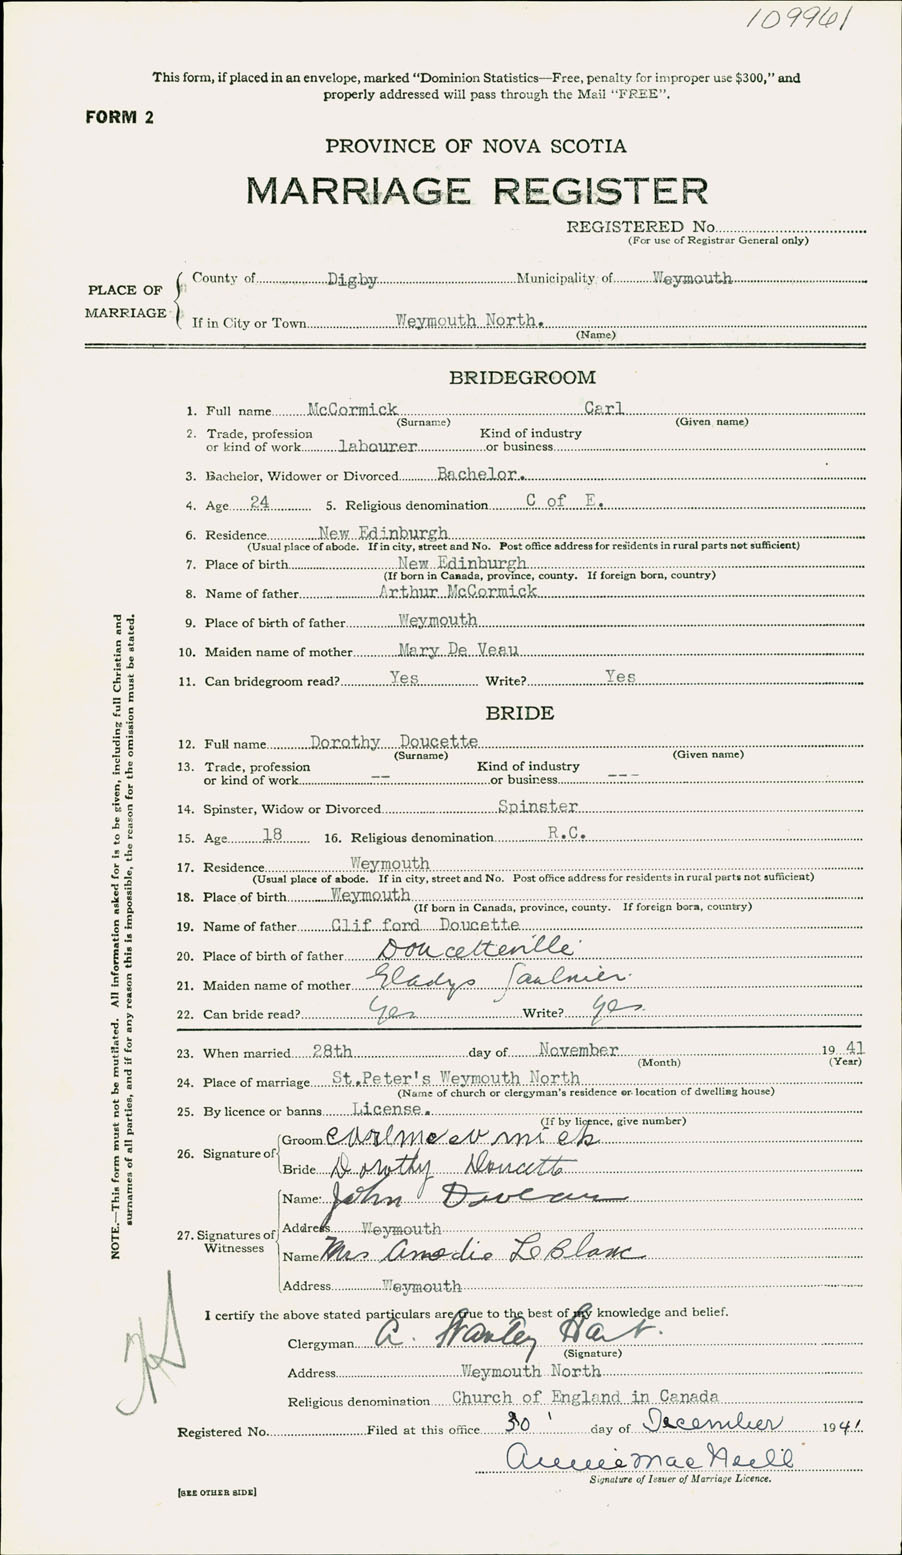 109961
This form, if placed in an envelope, marked “Dominion Statistics—Free, penalty for improper use $300,” and
properly addressed will pass through the Mail “FREE”.
FORM 2
PROVINCE OF NOVA SCOTIA
MARRIAGE REGISTER
REGISTERED No.
(For use of Registrar General only)
PLACE OF MARRIAGE
County of Digby Municipality of Weymouth
If in City or Town Weymouth North.
(Name)
BRIDEGROOM
1. Full name McCormick Carl
(Surname) (Given name)
2. Trade, profession Kind of industry
or kind of work labourer or business
3. Bachelor, Widower or Divorced Bachelor.
4. Age 24 5. Religious denomination C of E.
6. Residence New Edinburgh
(Usual place of abode. If in city, street and No. Post office address for residents in rural parts not sufficient)
7. Place of birth New Edinburgh
(If born in Canada, province, county. If foreign born, country)
8. Name of father Arthur McCormick
9. Place of birth of father Weymouth
10. Maiden name of mother Mary De Veau
11. Can bridegroom read? Yes Write? Yes
BRIDE
12. Full name Dorothy Doucette
(Surname) (Given name)
13. Trade, profession Kind of industry
or kind of work -- or business ---
14. Spinster, Widow or Divorced Spinster
15. Age 18 16. Religious denomination R.C.
17. Residence Weymouth
(Usual place of abode. If in city, street and No. Post office address for residents in rural parts not sufficient)
18. Place of birth Weymouth
(If born in Canada, province, county. If foreign born, country)
19. Name of father Clif ford Doucette
20. Place of birth of father Doucetteville
21. Maiden name of mother Gladys Saulnier
22. Can bride read? Yes Write? Yes
23. When married 28th day of November 19 41
(Month) (Year)
24. Place of marriage St.Peter's Weymouth North
(Name of church or clergyman's residence or location of dwelling house)
25. By licence or banns License.
(If by licence, give number)
26. Signature of
Groom carlmccormick
Bride Dorothy Doucette
27. Signatures of Witnesses
Name: John Deveau
Address Weymouth
Name Mrs Amedie LeBlanc
Address Weymouth
I certify the above stated particulars are true to the best of my knowledge and belief.
Clergyman A. Stanley Hart.
(Signature)
Address Weymouth North
Religious denomination Church of England in Canada
Registered No. Filed at this office 30 day of December 1941
Annie MacNeill
Signature of Issuer of Marriage Licence.
[SEE OTHER SIDE]
NOTE.—This form must not be mutilated. All information asked for is to be given, including full Christian and
surnames of all parties, and if for any reason this is impossible, the reason for the omission must be stated.